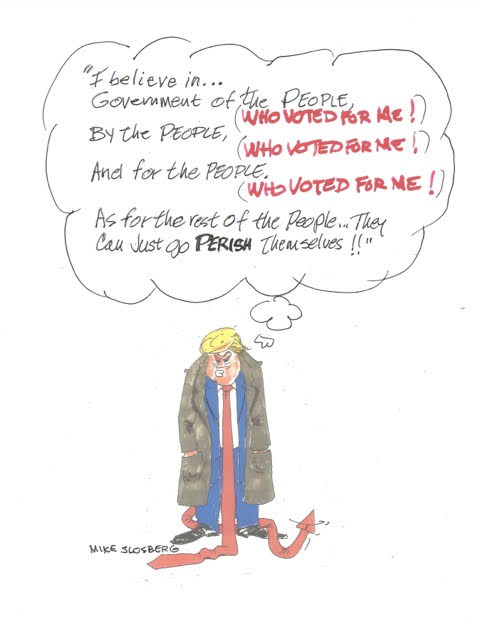 "I believe in...
Government of the PEOPLE,
(WHO VOTED FOR ME!)
By the PEOPLE,
(WHO VOTED FOR ME!)
And for the PEOPLE.
(WHO VOTED FOR ME!)
As for the rest of the People... They
Can Just go PERISH Themselves!!"
MIKE SLOSBERG